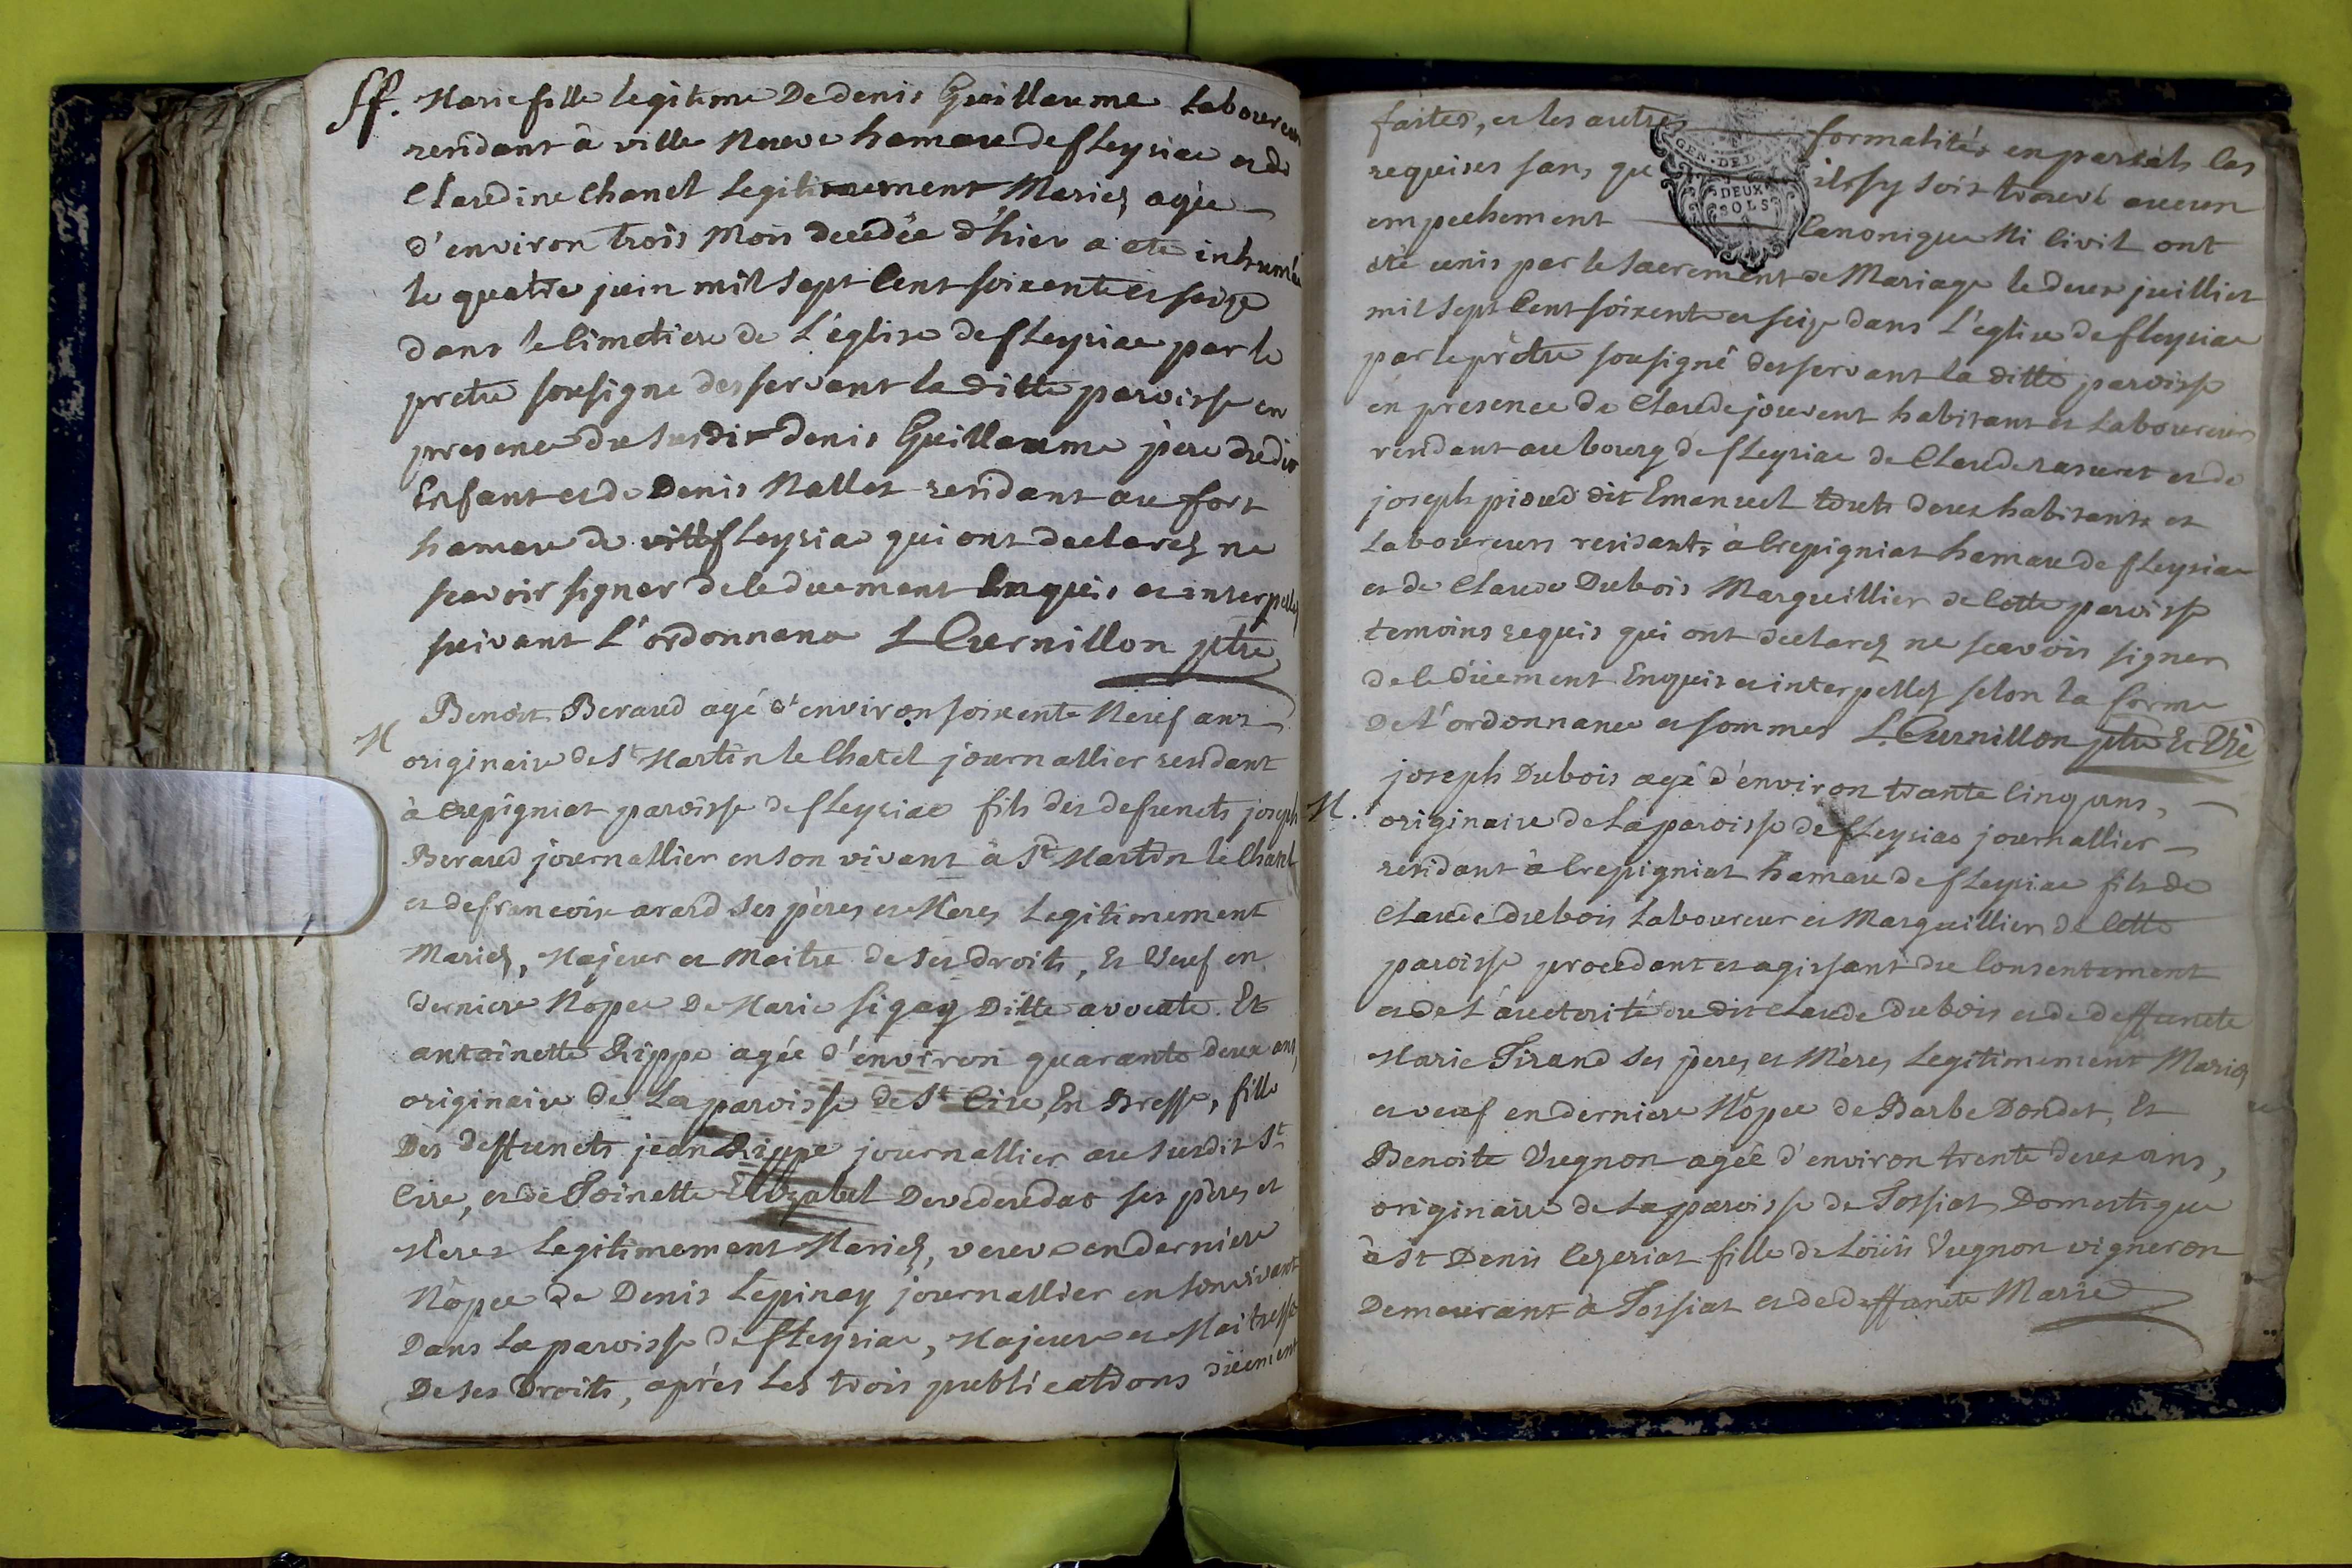 ff. Marie fille legitime De denis Guillaume Laboureur
residant à ville Neuve hameau de fleyriac et de
Claudine Chanel Legitimement Mariez agée
d'environ trois Mois decedée d'hier a eté inhumée
le quatre juin mil sept Cent soixente et seize
dans le Cimetiere de L'église de fleyriac par le
pretre sousigné desservant la ditte paroisse en
presence du susdit denis Guillaume père dudit
Enfant et de Denis Nallet residant au fort
hameau de fleyriac qui ont declarez ne
scavoir signer de le duement Enquis et interpellez
suivant L'ordonnance L Curnillon ptre
M Benoit Beraud agé d'environ soixente Neuf ans
originaire de St Martin le Chatel journallier residant
à Crepigniat paroisse de fleyriac fils des defuncts joseph
Beraud journallier en son vivant à St Martin le Chatel
et de francoise arard ses pères et Meres Legitimement
Mariez, Majeur et Maitre de ses droits, Et Veuf en
derniere Nopce De Marie sigay Ditte avocate. Et
antoinette Rippe agée d'environ quarante deux ans
originaire de La paroisse de St Cire En Bresse, fille
Des deffuncts jean Rippe journallier au susdit St
Cire, et de Toinette Elizabet Devedeudat ses pères et
Meres Legitimement Mariez, veuve en derniere
Nôpce de Denis Lépinay journallier en son vivant
Dans La paroisse de fleyriac, Majeure et Maitresse
De ses Droits, après Les trois publications duement
faites, et les autres formalités en pareils Cas
requises sans qu'il s'y soit trouvé aucun
empechement Canonique Ni Civil ont
été unis par le Sacrement de Mariage le deux juillier
mil sept Cent soixente et seize dans L'église de fleyriac
par le prêtre sousigné desservant la ditte paroisse
en presence de Claude jouvent habitant et Laboureur
residant au bourg de fleyriac de Claude rasuret et de
joseph pioud dit Emanuel touts deux habitants et
Laboureurs residants à Crepigniat hameau de fleyriac
et de Claude Dubois Marguillier de Cette paroisse
temoins requis qui ont declarez ne scavoir signer
de le Duement Enquis et interpellez selon la forme
De L'ordonnance et sommez L. Curnillon ptre Et Vre
M. joseph Dubois agé d'environ trante Cinq ans,
originaire de La paroisse de fleyriac journallier
residant à Crepigniat hameau de fleyriac fils de
Claude dubois Laboureur et Marguillier de Cette
paroisse procedant et agissant du Consentement
et de L'auctorité du dit Claude Dubois et de deffuncte
Marie Tirand ses pères et Mères Legitimement Mariez
et veuf en derniere Nôpce de Barbe Dondet, Et
Benoite Vugnon agée d'environ trente deux ans,
originaire de La paroisse de Tossiat Domestique
à St Denis Ceyzeriat fille de Loüis Vugnon vigneron
Demeurant à Tossiat et de deffuncte Marie
GEN. DE D
DEUX
SOLS